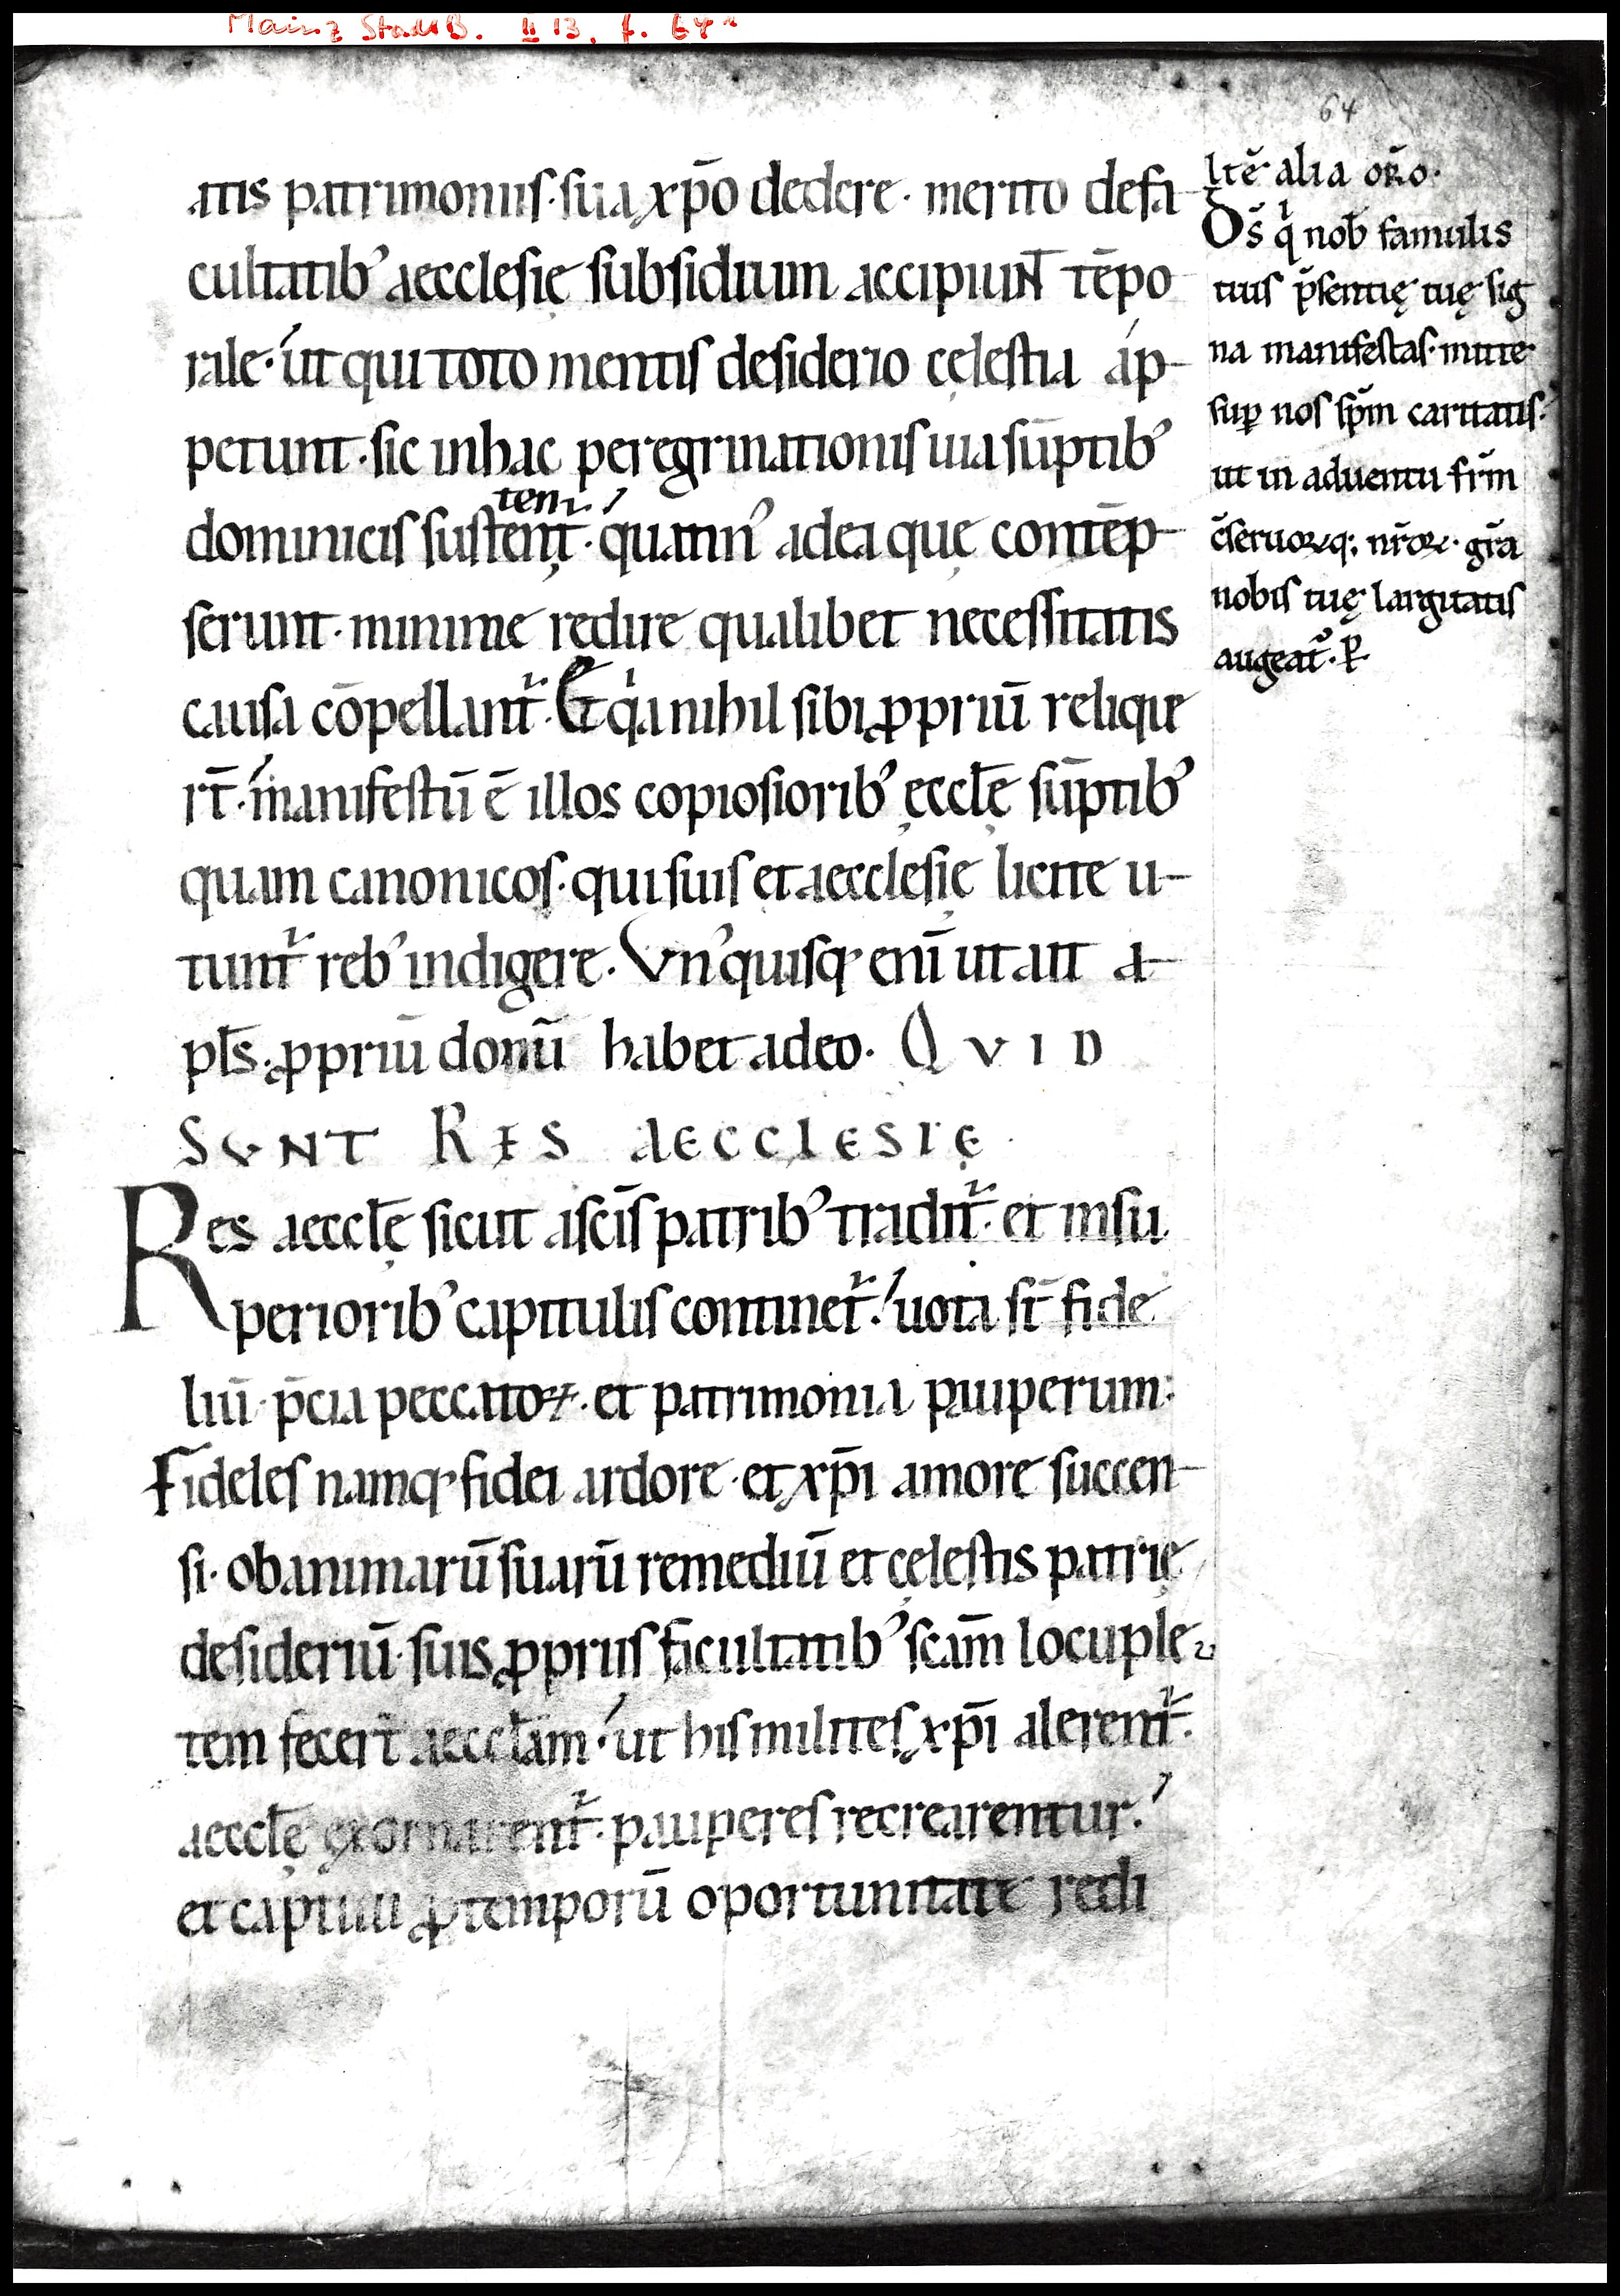 Mainz StadtB. II 13, f. 64r
64
atis patrimoniis· sua xp̄o dedere· merito defa-
cultatib' aecclesię subsidium accipiunt̄ tēpo
rale· ut qui toto mentis desiderio cęlestia áp-
petunt· sic inhac peregrinationis uia sūptib'
tem
dominicis sustenṭ· quatin' adea quę contēp-
serunt· minime redire qualibet necessitatis
causa cōpellant᷑· Et qͥa nihil sibi ꝓpriū relique
rt̄· manifestū ē illos copiosiorib' ęccłę sūptib'
quam canonicos· qui suis et aecclesię licite u-
tunt᷑ reb' indigere· Vn'quisq· enī ut ait a-
pł̄s· ꝓpriū donū habet adeo· QVID
SVNT RES AECCLESIĘ·
Res aeccłę sicut ascīs patrib' tradit᷑· et insu
periorib' capitulis continet᷑· uota st̄ fide
liū· p̄cia peccatoꝝ· et patrimonia pauperum:
Fideles namq· fidei ardore· et xp̄i amore succen-
si· ob animarū suarū remediū et cęlestis patrię
desideriū· suis ꝓpriis facultatib' scām locuple-
tem fecert̄ aeccłam· ut his milites xp̄i alerent᷑·
aeccłę exornarent᷑· pauperes recrearentur·
et captiui ꝓ temporū oportunitate redi
Itē alia oro·
Ds̄ qͥ nob̄ famulis
tuis p̄sentię tuę sig
na manifestas· mitte
suꝑ nos sp̄m caritatis·
ut in aduentu fr̄m
c̄seruoꝝq; nr̄oꝝ· gr̄a
nobis tuę largitatis
augeat᷑· P̱